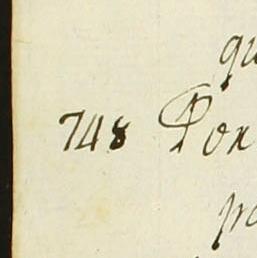 qu
748 Pon
po